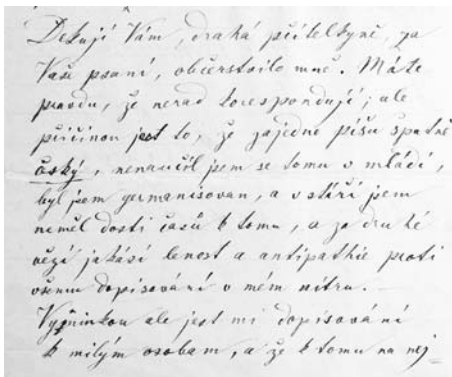 Dekuji Vám, drahá přítelkyně, za
Vaše psaní, občerstvilo mně. Máte
pravdu, že nerad korespondují; ale
příčinou jest to, že zajedno píšu špatně
český, nenaučil jsem se tomu v mládí,
byl jsem germanisovan, a v stáří jsem
neměl dosti časů k tomu, a za druhé
vězí jakási lenost a antipathie proti
všemu dopisování v mém nitru. –
Vyjminkou ale jest mi dopisování
k milým osobam, a že k tomu na nej-